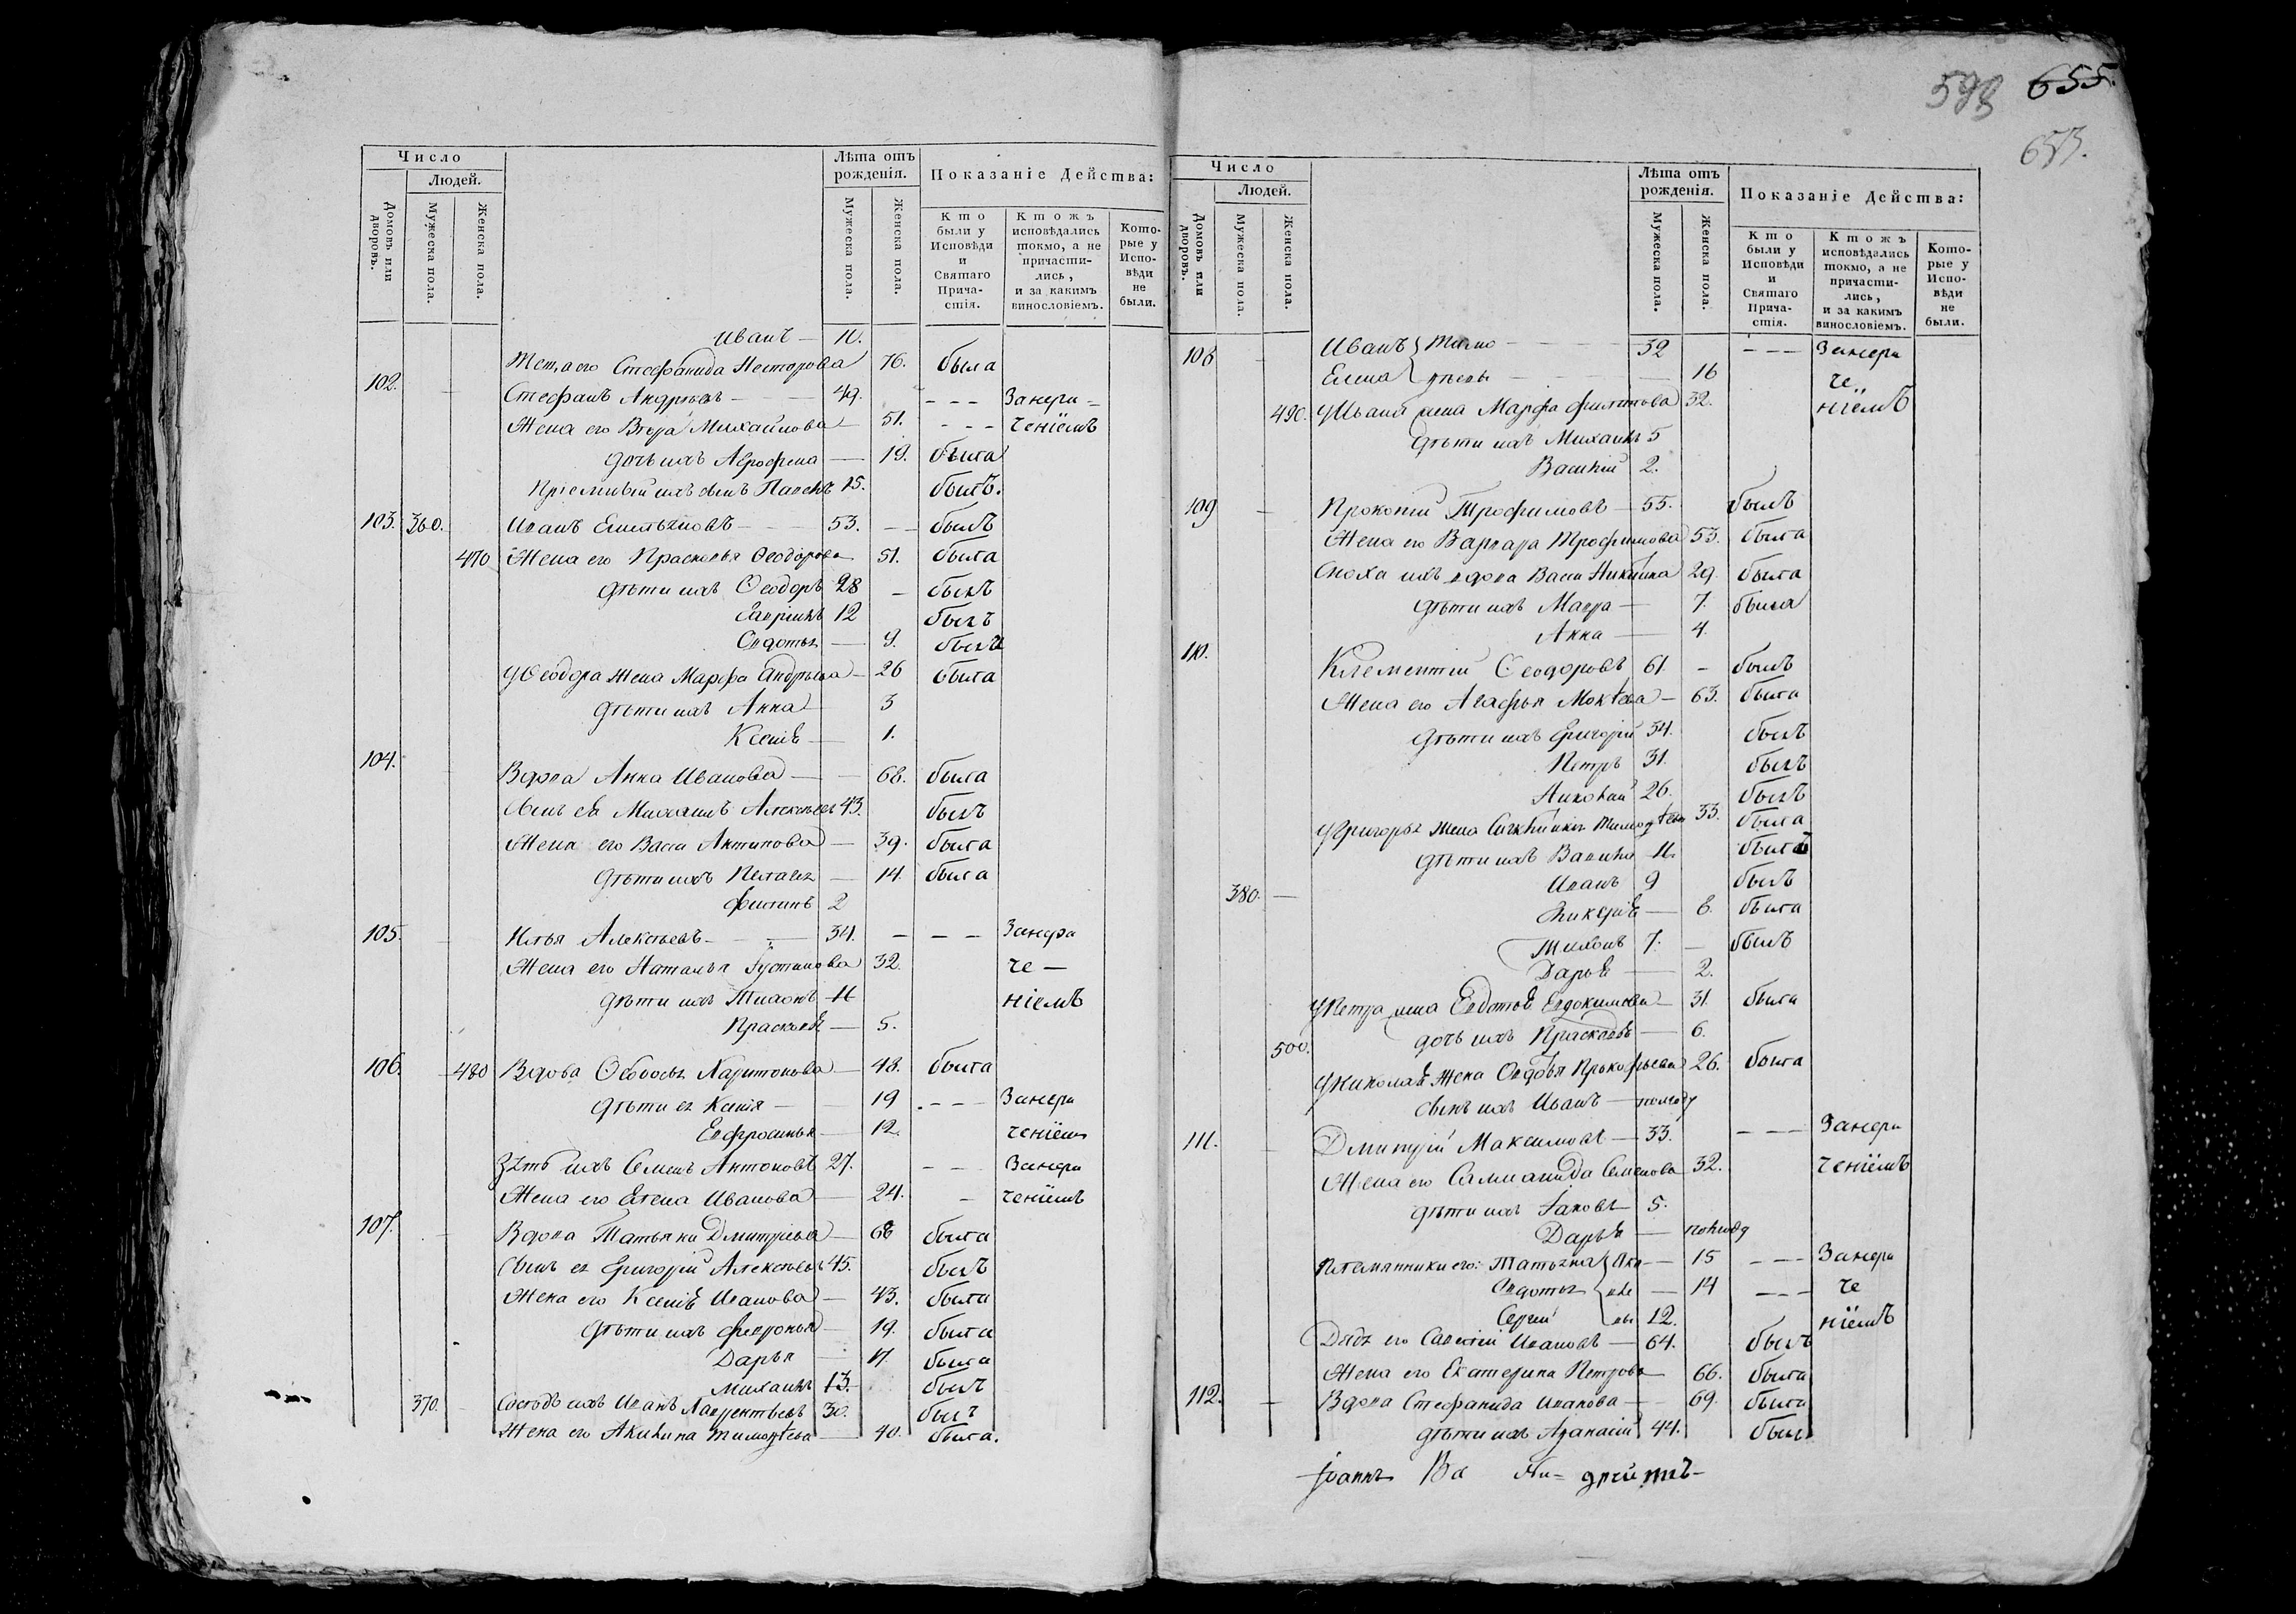 Число
Людей.
Домовъ или дворовъ.
Мужеска пола.
Женска пола.
Лѣта отъ рожденія.
Мужеска пола.
Женска пола.
Показаніе Действа:
Кто были у Исповѣди и Святаго Прича-стія.
Ктожъ исповѣдались токмо, а не причасти-лись, и за какимъ винословіемъ.
Кото-рые у Испо-вѣди не были.
Иванъ —
его Стефанида Несторова 76. была
102. Стефанъ Андреевъ — 49. - - - Занери-
Жена его Вѣра Михайлова 51. - - - ченіемъ
дочь ихъ Агрофена — 19. была
Пріемный ихъ сынъ Павелъ 15. былъ.
103. 360. Иванъ Емельяновъ — 53. - - былъ
470 Жена его Прасковья Ѳеодорова 51. была
дѣти ихъ Ѳеодоръ 28 - былъ
Гавріилъ 12 былъ
Евдотья — 9. была
У Ѳеодора жена Марфа Андреева — 26 была
дѣти ихъ Анна 3
Ксенія — 1.
104. Вдова Анна Иванова — 68. была
Сынъ ея Михаилъ Алексѣевъ 43. былъ
Жена его Васса Антипова — 39. была
дѣти ихъ Пелагея — 14. была
Филипъ 2
105. Илья Алексѣевъ — 34. - - - Занери
Жена его Наталья Іустинова 32. че —
дѣти ихъ Тихонъ 11 ніемъ
Прасковья — 5.
106. 480 Вдова Ѳедосья Харитонова — 48. была
дѣти ея Ксенія — 19 - - - Занери
Евфросинья — 12. ченіемъ
Зять ихъ Семенъ Антоновъ 27. - - Занери
Жена его Елена Иванова — 24. - ченіемъ
107. Вдова Татьяна Дмитріева — 68 была
Сынъ ея Григорій Алексѣевъ 45. былъ
Жена его Ксенія Иванова — 43. была
дѣти ихъ Февронья — 19. была
Дарья — 17. была
Михаилъ 13. былъ
370. Сосѣдъ ихъ Иванъ Лаврентьевъ 30. былъ
Жена его Акилина Тимоѳеева — 40. была.
598 655.
653.
Число
Людей.
Домовъ или дворовъ.
Мужеска пола.
Женска пола.
Лѣта отъ рожденія.
Мужеска пола.
Женска пола.
Показаніе Действа:
Кто были у Исповѣди и Святаго Прича-стія.
Ктожъ исповѣдались токмо, а не причасти-лись, и за какимъ винословіемъ.
Кото-рые у Испо-вѣди не были.
108 Иванъ } Тимо - 32 - - - Занери
Елена } ѳеевы — 16 че
490. У Ивана жена Марфа Филипова 32. ніемъ
дѣти ихъ Михаилъ 5
Василій 2.
109 Прокопій Трофимовъ — 55. былъ
Жена его Варвара Трофимова 53. была
Сноха ихъ вдова Васса Никитина 29. была
дѣти ихъ Мавра — 7. была
Анна — 4.
110. Клементій Ѳеодоровъ 61 - былъ
Жена его Агафья Мокѣева — 63. была
дѣти ихъ Григорій 34. былъ
Петръ 31. былъ
Николай 26. былъ
У Григорья жена Тимоѳеева 33. была
дѣти ихъ Василій 11. былъ
Иванъ 9 былъ
380. — Гликерія — 8. была
Тихонъ 7. — былъ
Дарья — 2.
У Петра жена Евдотья Евдокимова — 31. была
500. дочь ихъ Прасковья — 6.
У Николая жена Авдотья Прокофьева 26. была
сынъ ихъ Иванъ — полгоду
111. Дмитрій Максимовъ — 33. - - - Занери
Жена его Саломанида Семенова 32. ченіемъ
дѣти ихъ Іаковъ 5.
Дарья — полгоду
Племянники его: Татьяна } Яко — 15 - - - Занери
Евдотья } вле — 14 - - - че
Сергій } вы 12. ніемъ
Дядя его Савелій Ивановъ — 64. былъ
Жена его Екатерина Петрова 66. была
112. — Вдова Стефанида Иванова — 69. была
дѣти ихъ Аѳанасій 44. былъ
Іоаннъ Ва